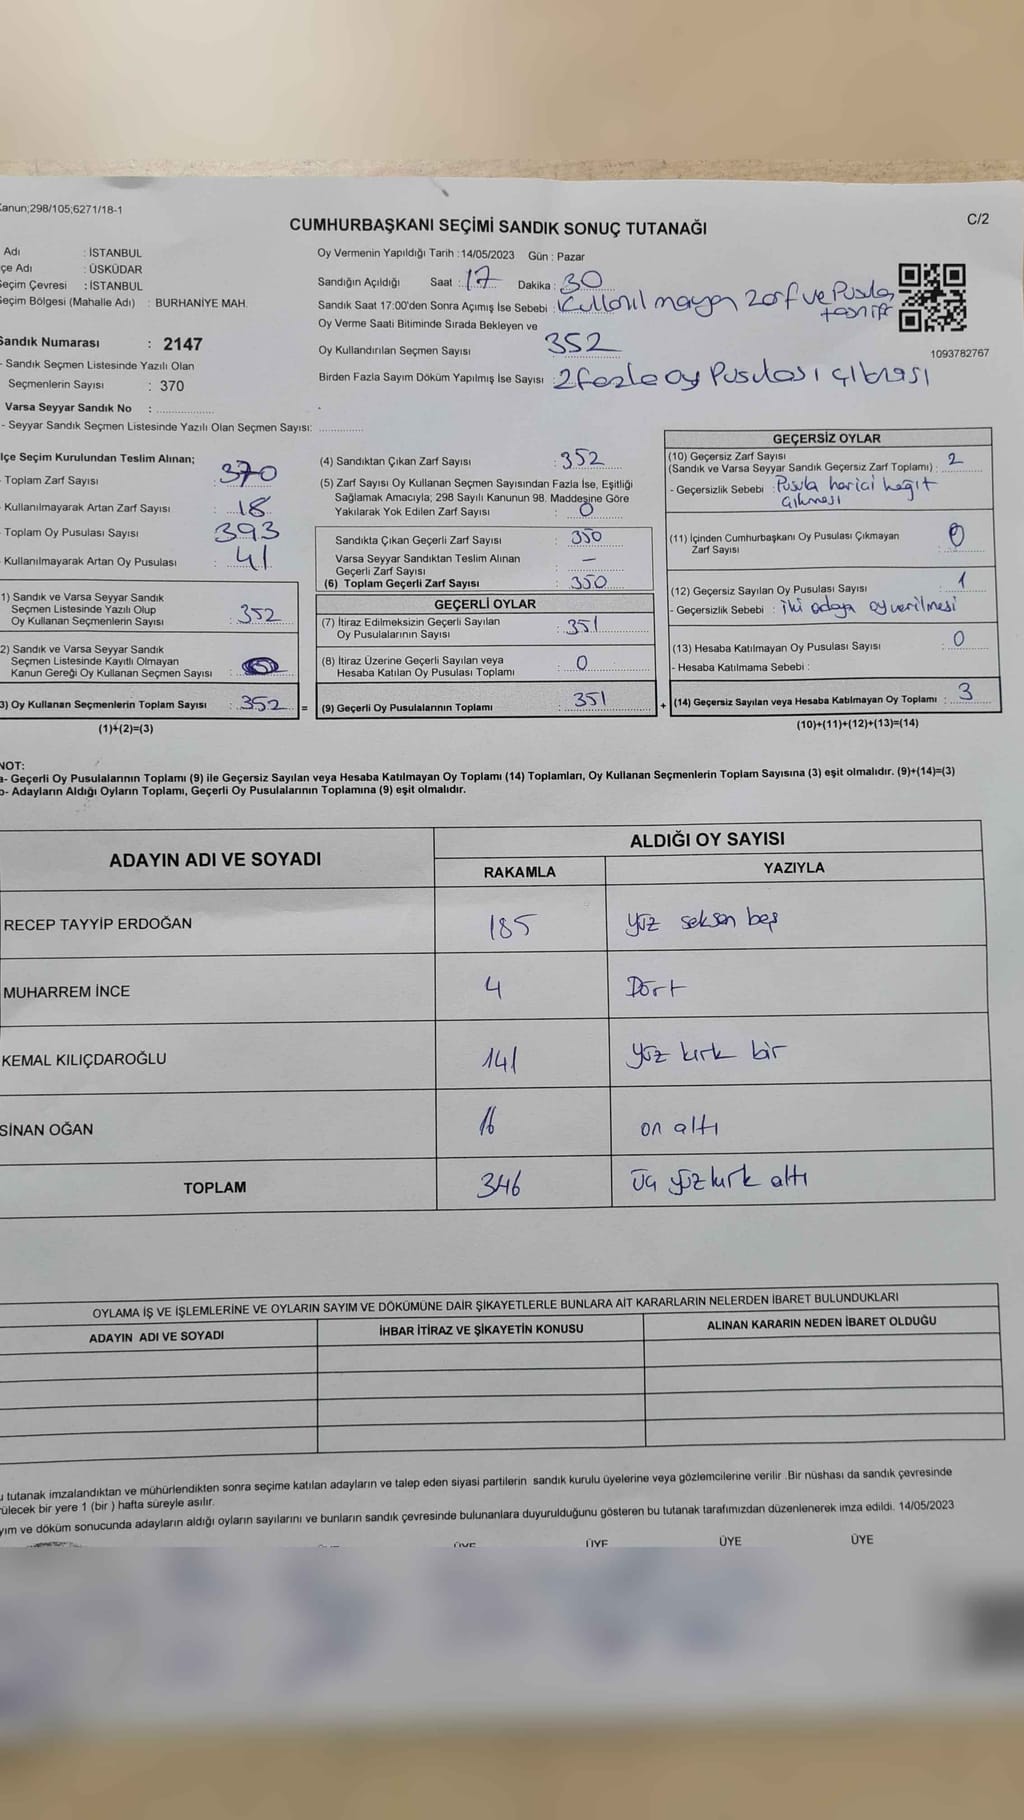 Kanun;298/105;6271/18-1
C/2
CUMHURBAŞKANI SEÇİMİ SANDIK SONUÇ TUTANAĞI
Adı : İSTANBUL
çe Adı : ÜSKÜDAR
Seçim Çevresi : İSTANBUL
Seçim Bölgesi (Mahalle Adı) : BURHANİYE MAH.
Sandık Numarası : 2147
- Sandık Seçmen Listesinde Yazılı Olan
Seçmenlerin Sayısı : 370
Varsa Seyyar Sandık No :
- Seyyar Sandık Seçmen Listesinde Yazılı Olan Seçmen Sayısı:
Oy Vermenin Yapıldığı Tarih :14/05/2023 Gün : Pazar
Sandığın Açıldığı Saat : 17 Dakika : 30
Sandık Saat 17:00'den Sonra Açımış İse Sebebi : Kullanılmayan zarf ve Pusula tasnifi
Oy Verme Saati Bitiminde Sırada Bekleyen ve
Oy Kullandırılan Seçmen Sayısı 352
Birden Fazla Sayım Döküm Yapılmış İse Sayısı : 2 fazla oy Pusulası çıkması
1093782767
lçe Seçim Kurulundan Teslim Alınan;
- Toplam Zarf Sayısı : 370
- Kullanılmayarak Artan Zarf Sayısı : 18
- Toplam Oy Pusulası Sayısı : 393
- Kullanılmayarak Artan Oy Pusulası : 41
1) Sandık ve Varsa Seyyar Sandık
Seçmen Listesinde Yazılı Olup
Oy Kullanan Seçmenlerin Sayısı : 352
2) Sandık ve Varsa Seyyar Sandık
Seçmen Listesinde Kayıtlı Olmayan
Kanun Gereği Oy Kullanan Seçmen Sayısı :
3) Oy Kullanan Seçmenlerin Toplam Sayısı : 352 =
(1)+(2)=(3)
(4) Sandıktan Çıkan Zarf Sayısı : 352
(5) Zarf Sayısı Oy Kullanan Seçmen Sayısından Fazla İse, Eşitliği
Sağlamak Amacıyla; 298 Sayılı Kanunun 98. Maddesine Göre
Yakılarak Yok Edilen Zarf Sayısı : 0
Sandıkta Çıkan Geçerli Zarf Sayısı : 350
Varsa Seyyar Sandıktan Teslim Alınan
Geçerli Zarf Sayısı : —
(6) Toplam Geçerli Zarf Sayısı : 350
GEÇERLİ OYLAR
(7) İtiraz Edilmeksizin Geçerli Sayılan
Oy Pusulalarının Sayısı : 351
(8) İtiraz Üzerine Geçerli Sayılan veya
Hesaba Katılan Oy Pusulası Toplamı : 0
(9) Geçerli Oy Pusulalarının Toplamı : 351 +
GEÇERSİZ OYLAR
(10) Geçersiz Zarf Sayısı
(Sandık ve Varsa Seyyar Sandık Geçersiz Zarf Toplamı) : 2
- Geçersizlik Sebebi : Pusula harici kağıt
çıkması
(11) İçinden Cumhurbaşkanı Oy Pusulası Çıkmayan
Zarf Sayısı : 0
(12) Geçersiz Sayılan Oy Pusulası Sayısı : 1
- Geçersizlik Sebebi : iki adaya oy verilmesi
(13) Hesaba Katılmayan Oy Pusulası Sayısı : 0
- Hesaba Katılmama Sebebi :
(14) Geçersiz Sayılan veya Hesaba Katılmayan Oy Toplamı : 3
(10)+(11)+(12)+(13)=(14)
NOT:
a- Geçerli Oy Pusulalarının Toplamı (9) ile Geçersiz Sayılan veya Hesaba Katılmayan Oy Toplamı (14) Toplamları, Oy Kullanan Seçmenlerin Toplam Sayısına (3) eşit olmalıdır. (9)+(14)=(3)
b- Adayların Aldığı Oyların Toplamı, Geçerli Oy Pusulalarının Toplamına (9) eşit olmalıdır.
ADAYIN ADI VE SOYADI
ALDIĞI OY SAYISI
RAKAMLA YAZIYLA
RECEP TAYYİP ERDOĞAN 185 yüz seksen beş
MUHARREM İNCE 4 Dört
KEMAL KILIÇDAROĞLU 141 yüz kırk bir
SİNAN OĞAN 16 on altı
TOPLAM 346 üç yüz kırk altı
OYLAMA İŞ VE İŞLEMLERİNE VE OYLARIN SAYIM VE DÖKÜMÜNE DAİR ŞİKAYETLERLE BUNLARA AİT KARARLARIN NELERDEN İBARET BULUNDUKLARI
ADAYIN ADI VE SOYADI İHBAR İTİRAZ VE ŞİKAYETİN KONUSU ALINAN KARARIN NEDEN İBARET OLDUĞU
u tutanak imzalandıktan ve mühürlendikten sonra seçime katılan adayların ve talep eden siyasi partilerin sandık kurulu üyelerine veya gözlemcilerine verilir .Bir nüshası da sandık çevresinde
rülecek bir yere 1 (bir ) hafta süreyle asılır.
yım ve döküm sonucunda adayların aldığı oyların sayılarını ve bunların sandık çevresinde bulunanlara duyurulduğunu gösteren bu tutanak tarafımızdan düzenlenerek imza edildi. 14/05/2023
ÜYE ÜYE ÜYE ÜYE